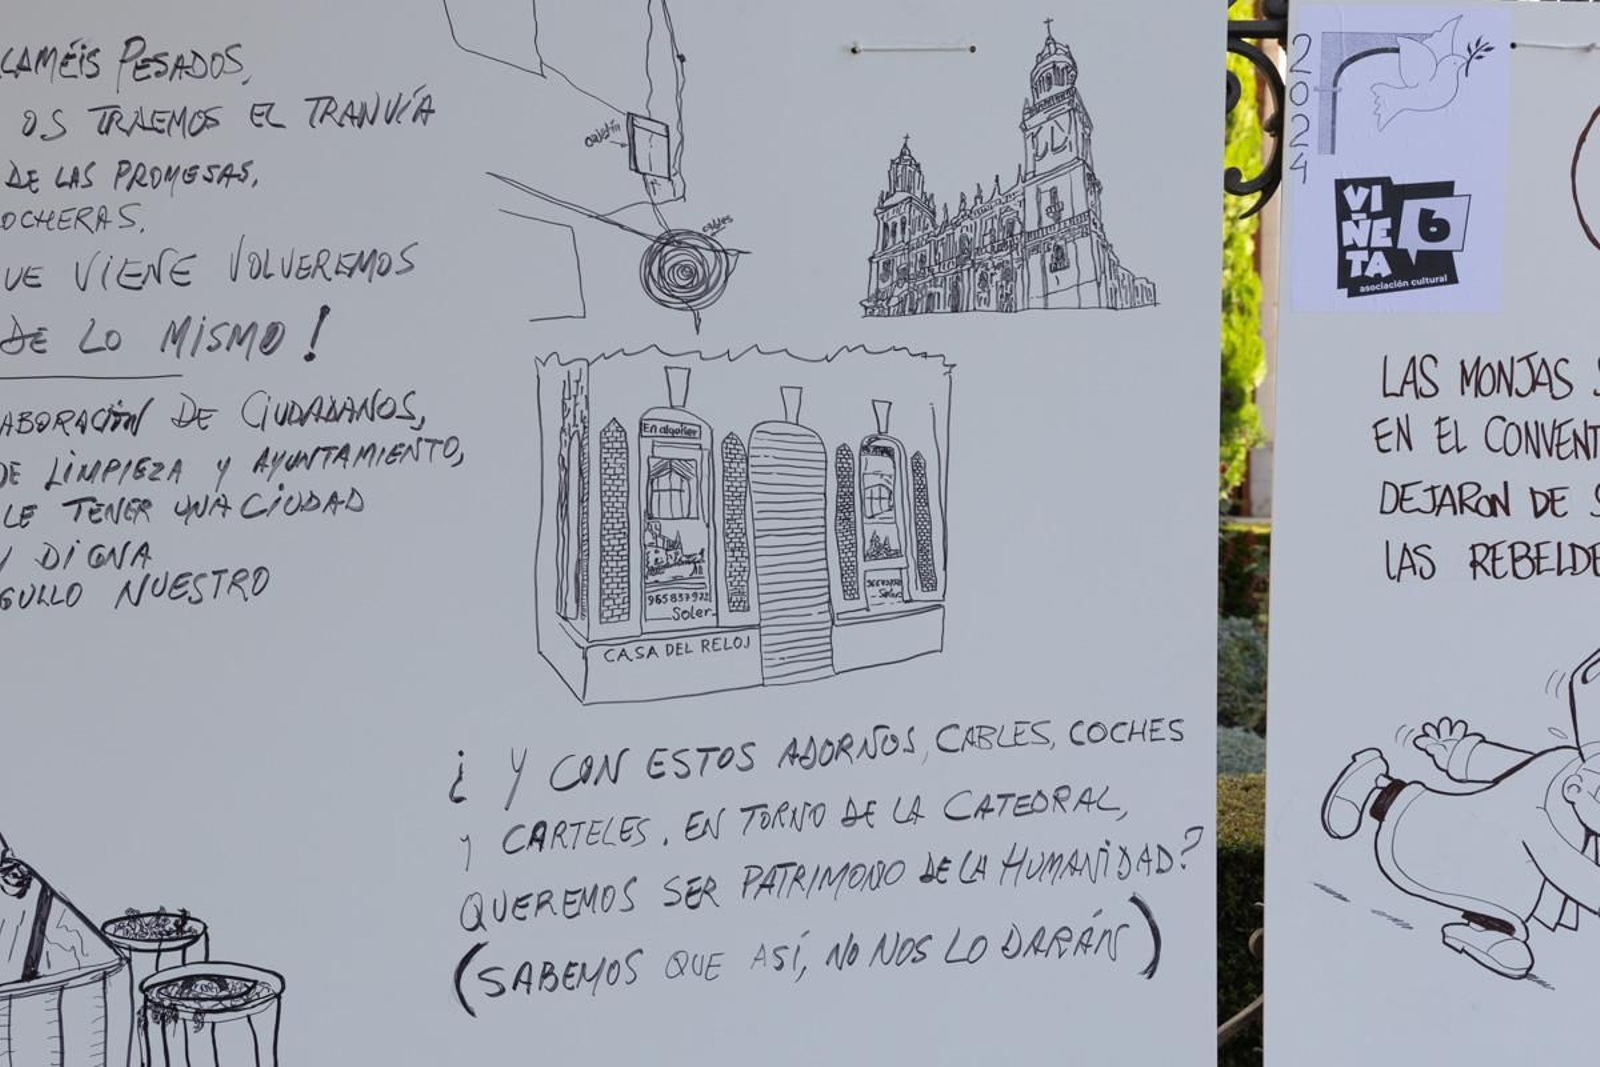 LAMÉIS PESADOS,
OS TRAEMOS EL TRANVÍA
DE LAS PROMESAS,
OCHERAS.
UE VIENE VOLVEREMOS
DE LO MISMO!
ABORACIÓN DE CIUDADANOS,
DE LIMPIEZA Y AYUNTAMIENTO,
LE TENER UNA CIUDAD
Y DIGNA
GULLO NUESTRO
cables
En alquiler
965837922
Soler
Soler
CASA DEL RELOJ
¿Y CON ESTOS ADORNOS, CABLES, COCHES
Y CARTELES. EN TORNO DE LA CATEDRAL,
QUEREMOS SER PATRIMONIO DE LA HUMANIDAD?
(SABEMOS QUE ASÍ, NO NOS LO DARÁN)
2024
VIÑETA 6
asociación cultural
LAS MONJAS S
EN EL CONVENT
DEJARON DE S
LAS REBELDE